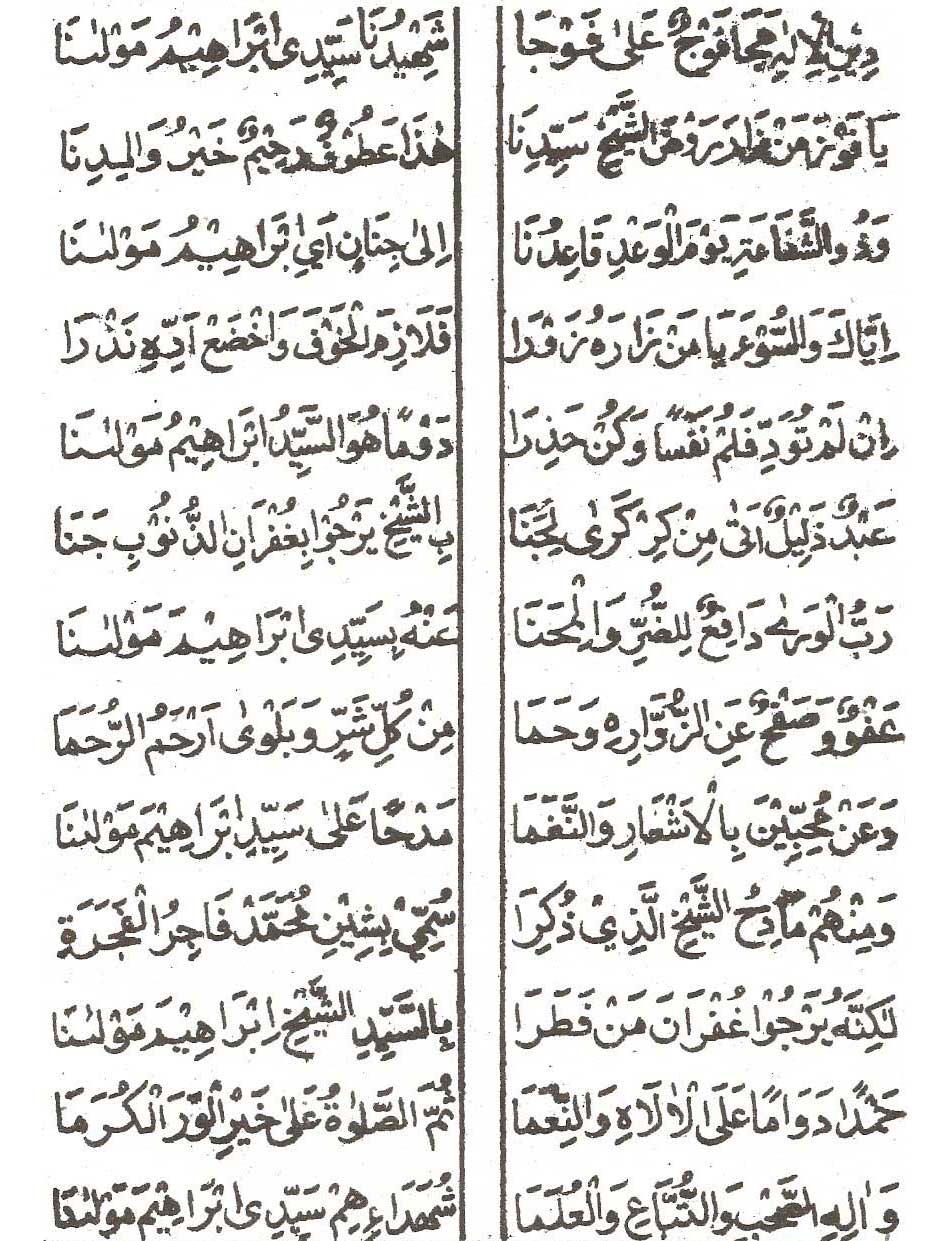 دِيْنِ الْاِلٰهِ مَحَا فَوْجٌ عَلٰى فَوْجَا شَهِيْدُنَا سَيِّدِى اِبْرَاهِيْمُ مَوْلٰىنَا
يَا فَوْزَ مَنْ زَارَ رَوْضَ الشَّيْخِ سَيِّدِنَا هٰذَا عَطُوْفٌ رَحِيْمٌ خَيْرُ وَالِدِنَا
وَذُو الشَّفَاعَةِ يَوْمَ الْوَعْدِ قَاعِدُنَا اِلٰى جِنَانٍ اَيِ ابْرَاهِيْمُ مَوْلٰىنَا
اِيَّاكَ وَالسُّوْءَ يَا مَنْ زَارَهُ زَوْرَا فَلَازِمِ الْخَوْفَ وَاخْضَعْ اَدِّهِ نَذْرَا
اِنْ لَمْ تُوَدِّ فَلُمْ نَفْسًا وَكُنْ حَذِرَا دَوْمًا هُوَ السَّيِّدُ ابْرَاهِيْمُ مَوْلٰىنَا
عَبْدٌ ذَلِيْلٌ اَتٰى مِنْ كِرْكَرٰى لِجَنَا بِ الشَّيْخِ يَرْجُوْا بِغُفْرَانِ الذُّنُوْبِ جَنَا
رَبُّ الْوَرٰى دَافِعٌ لِلضُّرِّ وَالْمِحَنَا عَنْهُ بِسَيِّدِى اِبْرَاهِيْمَ مَوْلٰىنَا
عَفْوٌ وَصَفْحٌ عَنِ الزُّوَّارِهِ وَحَمَا مِنْ كُلِّ شَرٍّ وَبَلْوٰى اَرْحَمُ الرُّحَمَا
وَعَنْ مُحِبِّيْنَ بِالْاَشْعَارِ وَالنَّغَمَا مَدْحًا عَلٰى سَيِّدِ ابْرَاهِيْمَ مَوْلٰىنَا
وَمِنْهُمْ مَادِحُ الشَّيْخِ الَّذِيْ ذُكِرَا سُمِّيْ بِشِيْنِ مُحَمَّدْ فَاجِرُ الْفَجَرَةِ
لٰكِنَّهُ يَرْجُوْا غُفْرَانَ مَنْ فَطَرَا بِالسَّيِّدِ الشَّيْخِ اِبْرَاهِيْمَ مَوْلٰىنَا
حَمْدًا دَوَامًا عَلَى الْاٰلَاهِ وَالنِّعْمَا ثُمَّ الصَّلٰوةُ عَلٰى خَيْرِ الْوَرَ الْكُرَمَا
وَاٰلِهِ الصَّحْبِ وَالتُّبَّاعِ وَالْعُلَمَا شُهَدَاءِهِمْ سَيِّدِى ابْرَاهِيْمَ مَوْلٰىنَا